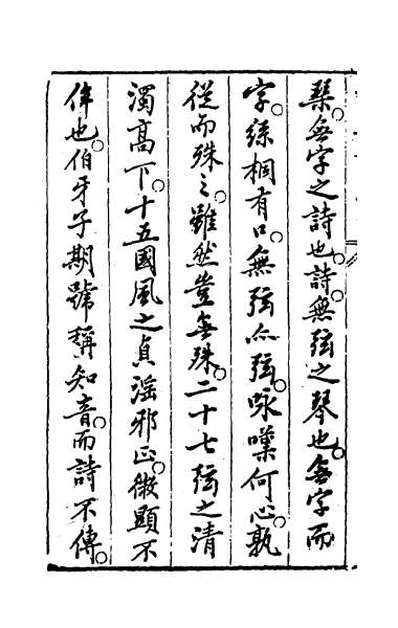 琴無字之詩也。詩無弦之琴也。無字而
字。絲桐有口。無弦亦弦。咏嘆何心。孰
從而殊之。雖然豈無殊。二十七弦之清
濁高下。十五國風之貞淫邪正。微顯不
侔也。伯牙子期號稱知音。而詩不傳。